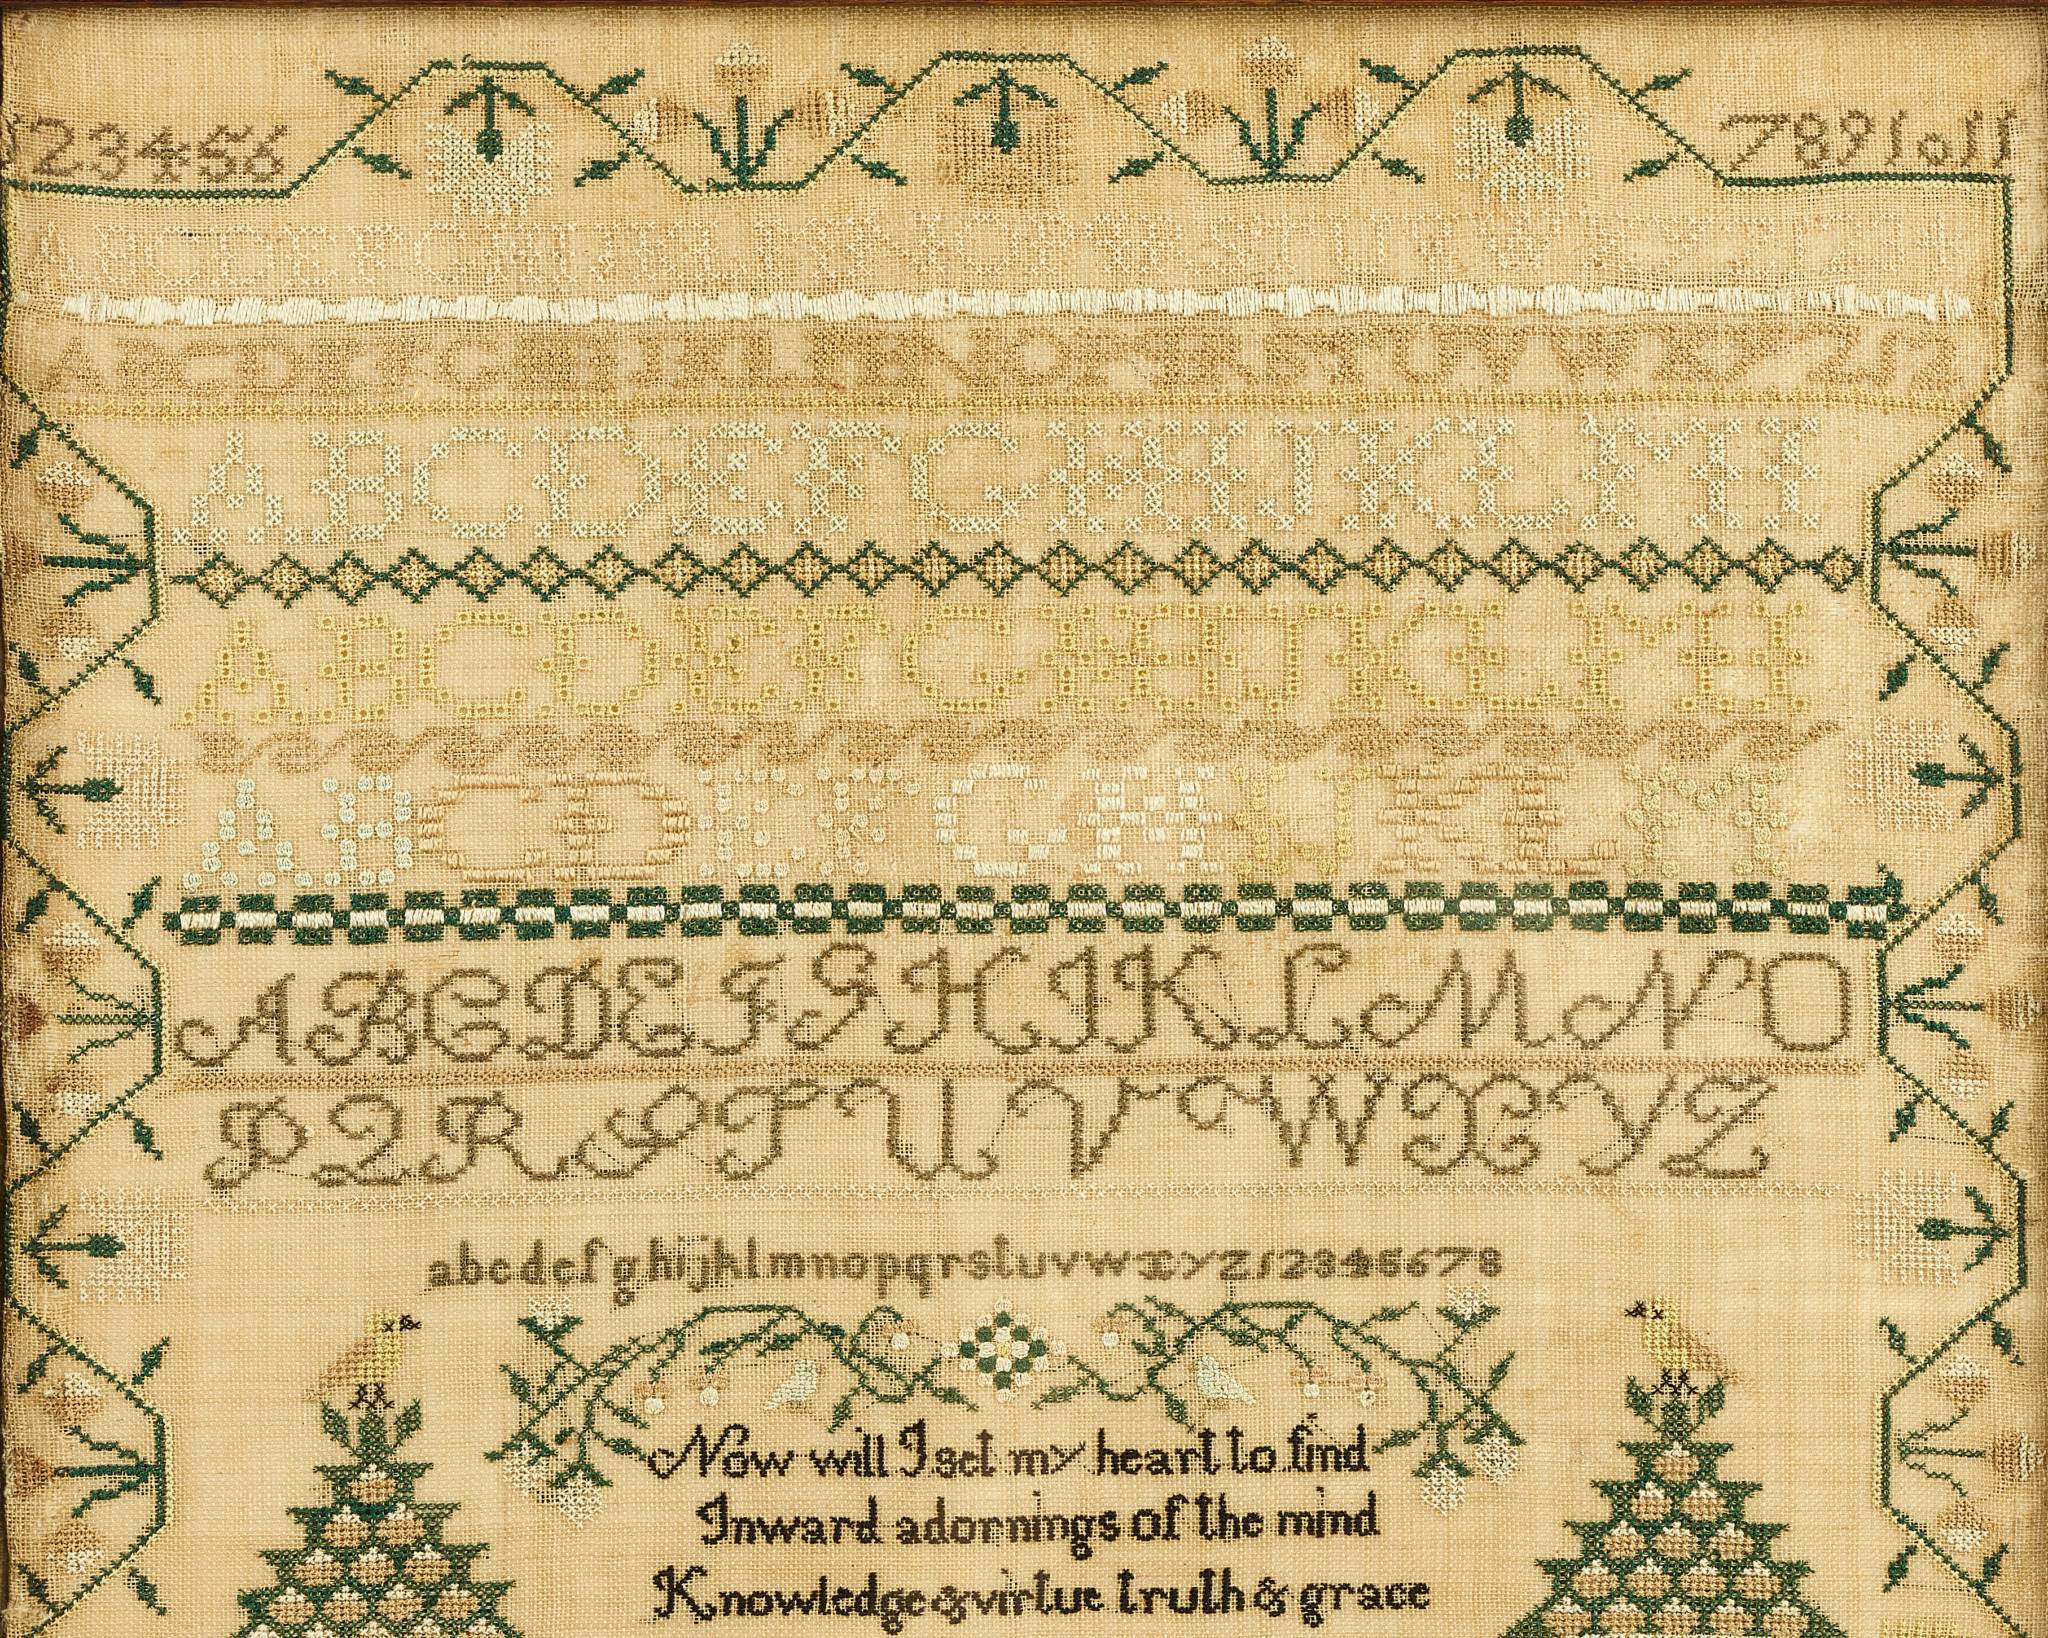 123456 7891011
ABCDEFGHIJKLMNOPQRSTUVW
ABCDEFGHIJKLMNOPQRSTUVWXYZ
ABCDEFGHIJKLM
ABCDEFGHIJKLM
ABCDEFGHIJKLM
ABCDEFGHIKLMNO
PQRSTUVWXYZ
abcdefghijklmnopqrstuvwxyz12345678
Now will I set my heart to find
Inward adornings of the mind
Knowledge & virtue truth & grace